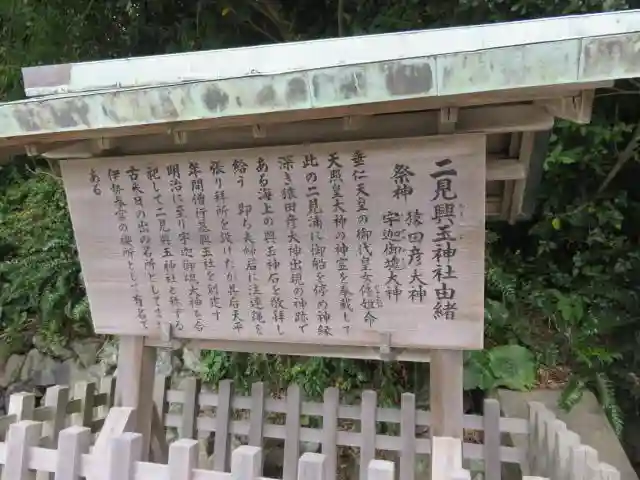 二見興玉神社由緒
祭神 猿田彦大神
宇迦御魂大神
垂仁天皇の御代皇女倭姫命
天照皇大神の神霊を奉戴して
此の二見浦に御船を停め神縁
深き猿田彦大神出現の神跡で
ある海上の興玉神石を敬拝し
給う 即ち夫婦岩に注連縄を
張り拝所を設けたり其后天平
年間僧行基興玉社を創定す
明治に至り宇迦御魂大神を合
祀して二見興玉神社と称する
古来日の出の名所にしてまた
伊勢参宮の禊所として有名で
ある